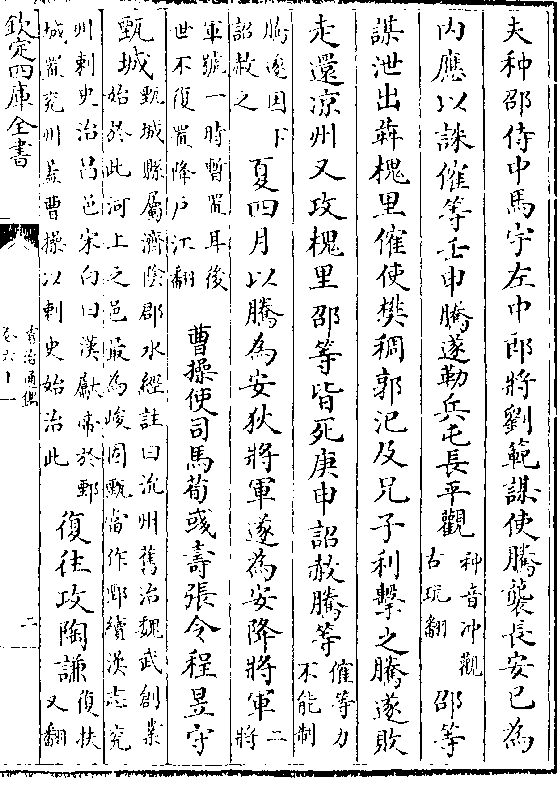 夫种邵侍中馬宇左中郎將劉範謀使騰襲長安已為
内應以誅傕等壬申騰遂勒兵屯長平觀种音冲觀古玩翻邵等
謀泄出犇槐里傕使樊稠郭汜及兄子利擊之騰遂敗
走還涼州又攻槐里邵等皆死庚申詔赦騰等傕等力不能制
騰遂因下詔赦之夏四月以騰為安狄將軍遂為安降將軍二將
軍號一時暫置耳後世不復置降户江翻曹操使司馬荀彧壽張令程昱守
甄城甄城縣屬濟陰郡水經註曰沇州舊治魏武創業始於此河上之邑最為峻固甄當作鄄續漢志兖
州刺史治昌邑宋白曰漢獻帝於鄄城置兖州葢曹操以刺史始治此復往攻陶謙復扶又翻
欽定四庫全書
資治通鑑
卷六十一
二